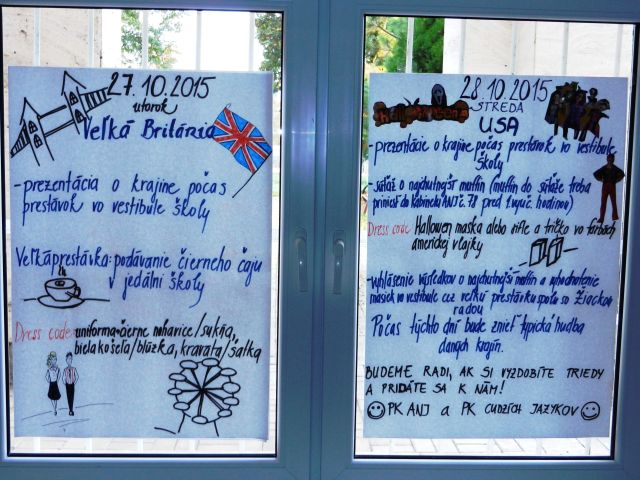 27.10.2015
utorok
Veľká Británia
-prezentácia o krajine počas
prestávok vo vestibule školy
Veľká prestávka: podávanie čierneho čaju
v jedálni školy
Dress code: uniforma-čierne nohavice/sukňa,
biela košeľa/blúzka, kravata/šatka
28.10.2015
STREDA
USA
-prezentácie o krajine počas prestávok vo vestibule
školy
-súťaž o najchutnejší muffin (muffin do súťaže treba
priniesť do kabinetu ANJ č. 78 pred 1. vyuč. hodinou)
Dress code Halloween maska alebo rifle a tričko vo farbách
americkej vlajky
-vyhlásenie výsledkov o najchutnejší muffin a vyhodnotenie
masiek vo vestibule cez veľkú prestávku spolu so Žiackou
radou
Počas týchto dní bude znieť typická hudba
daných krajín.
BUDEME RADI, AK SI VYZDOBÍTE TRIEDY
A PRIDÁTE SA K NÁM!
PK ANJ a PK CUDZÍCH JAZYKOV